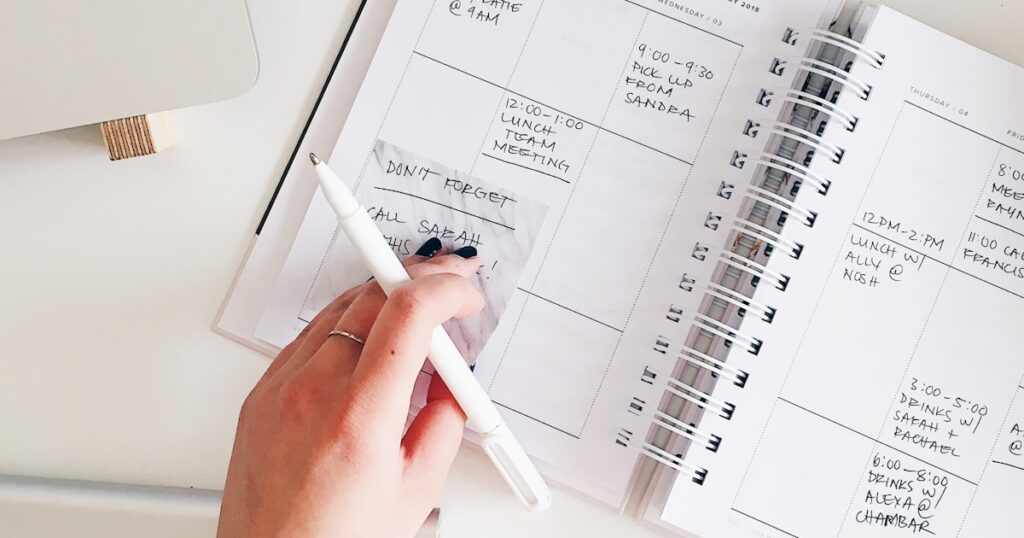 @ 9AM
2018
WEDNESDAY / 03
9:00 - 9:30
PICK UP
FROM
SANDRA
12:00 - 1:00
LUNCH
TEAM
MEETING
DON'T FORGET
CALL SARAH
!
THURSDAY / 04
12PM - 2:PM
LUNCH W/
ALLY @
NOSH
3:00 - 5:00
DRINKS W/
SARAH +
RACHAEL
6:00 - 8:00
DRINKS W/
ALEXA @
CHAMBAR
8:00
11:00
FRANCIS